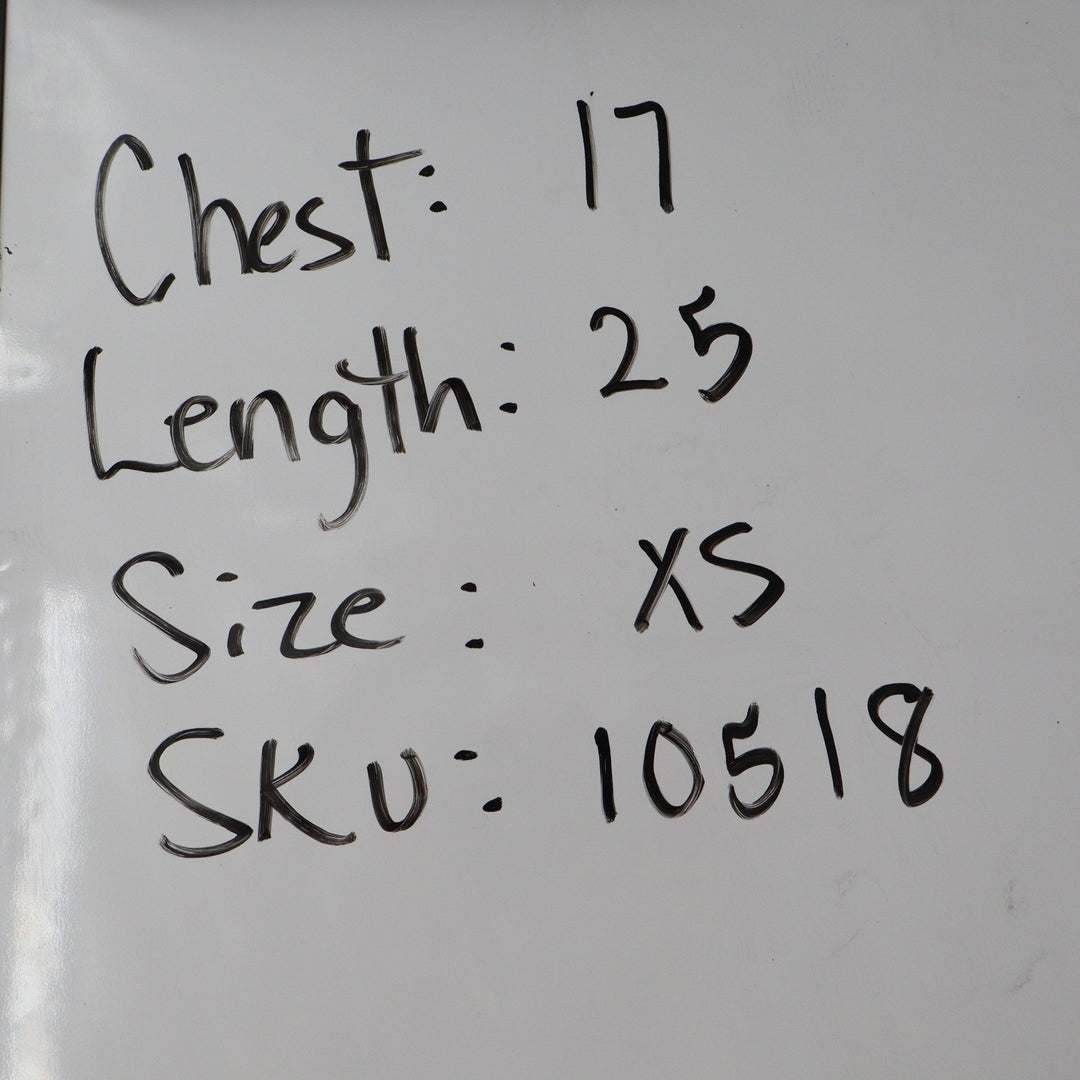 Chest: 17
Length: 25
Size: XS
SKU: 10518